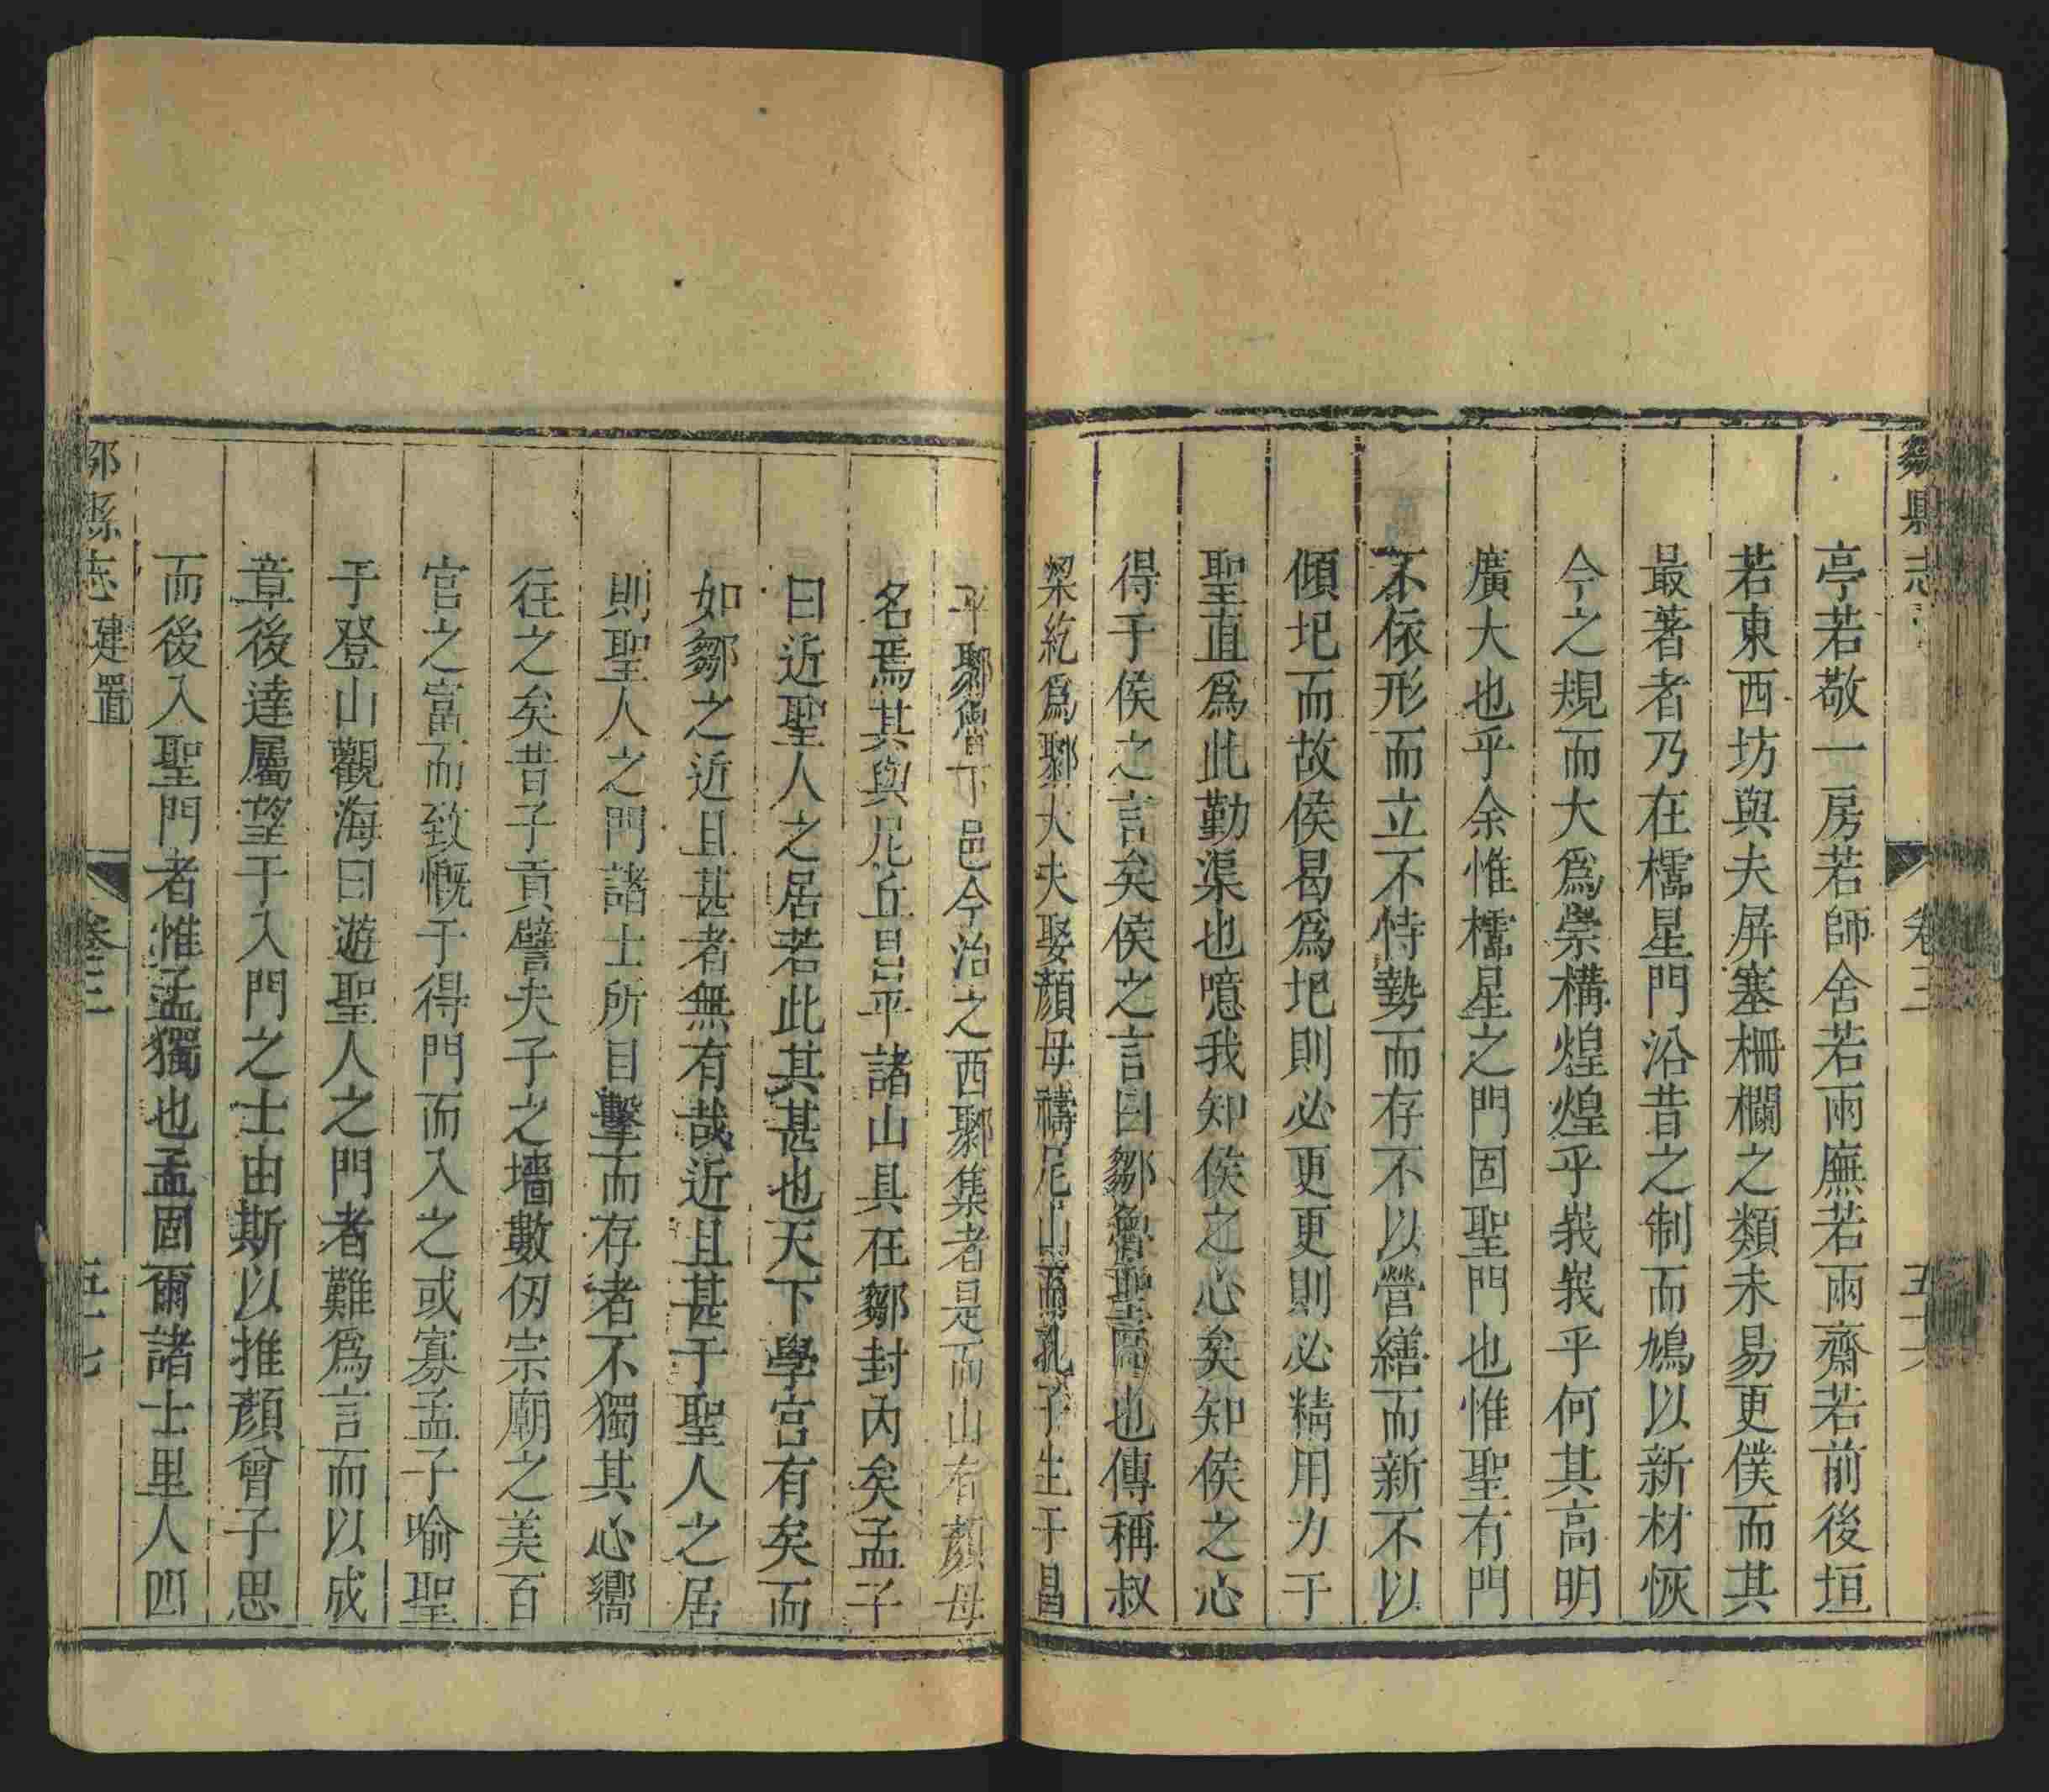 鄒縣志
卷三
五十六
亭若敬一房若師舍若兩廡若兩齋若前後垣
若東西坊與夫屏塞柵欄之類未易更僕而其
最著者乃在櫺星門沿昔之制而鳩以新材恢
今之規而大為崇構煌煌乎峩峩乎何其高明
廣大也乎余惟櫺星之門固聖門也惟聖有門
不依形而立不恃勢而存不以營繕而新不以
傾圮而故侯曷為圮則必更更則必精用力于
聖直爲此勤渠也噫我知侯之心矣知侯之心
得于侯之言矣侯之言曰鄒魯聖閭也傳稱叔
梁紇爲鄹大夫娶顏母禱尼山而孔子生于昌
平鄹魯下邑今治之西鄹集者是而山有顏母
名焉其與尼丘昌平諸山具在鄒封內矣孟子
曰近聖人之居若此其甚也天下學宮有矣而
如鄒之近且甚者無有哉近且甚于聖人之居
則聖人之門諸士所目擊而存者不獨其心嚮
往之矣昔子貢譬夫子之墻數仞宗廟之美百
官之富而致慨于得門而入之或寡孟子喻聖
于登山觀海曰遊聖人之門者難爲言而以成
章後達屬望于入門之士由斯以推顏曾子思
而後入聖門者惟孟獨也孟固爾諸士里人四
鄒縣志 建置
卷三
五十七